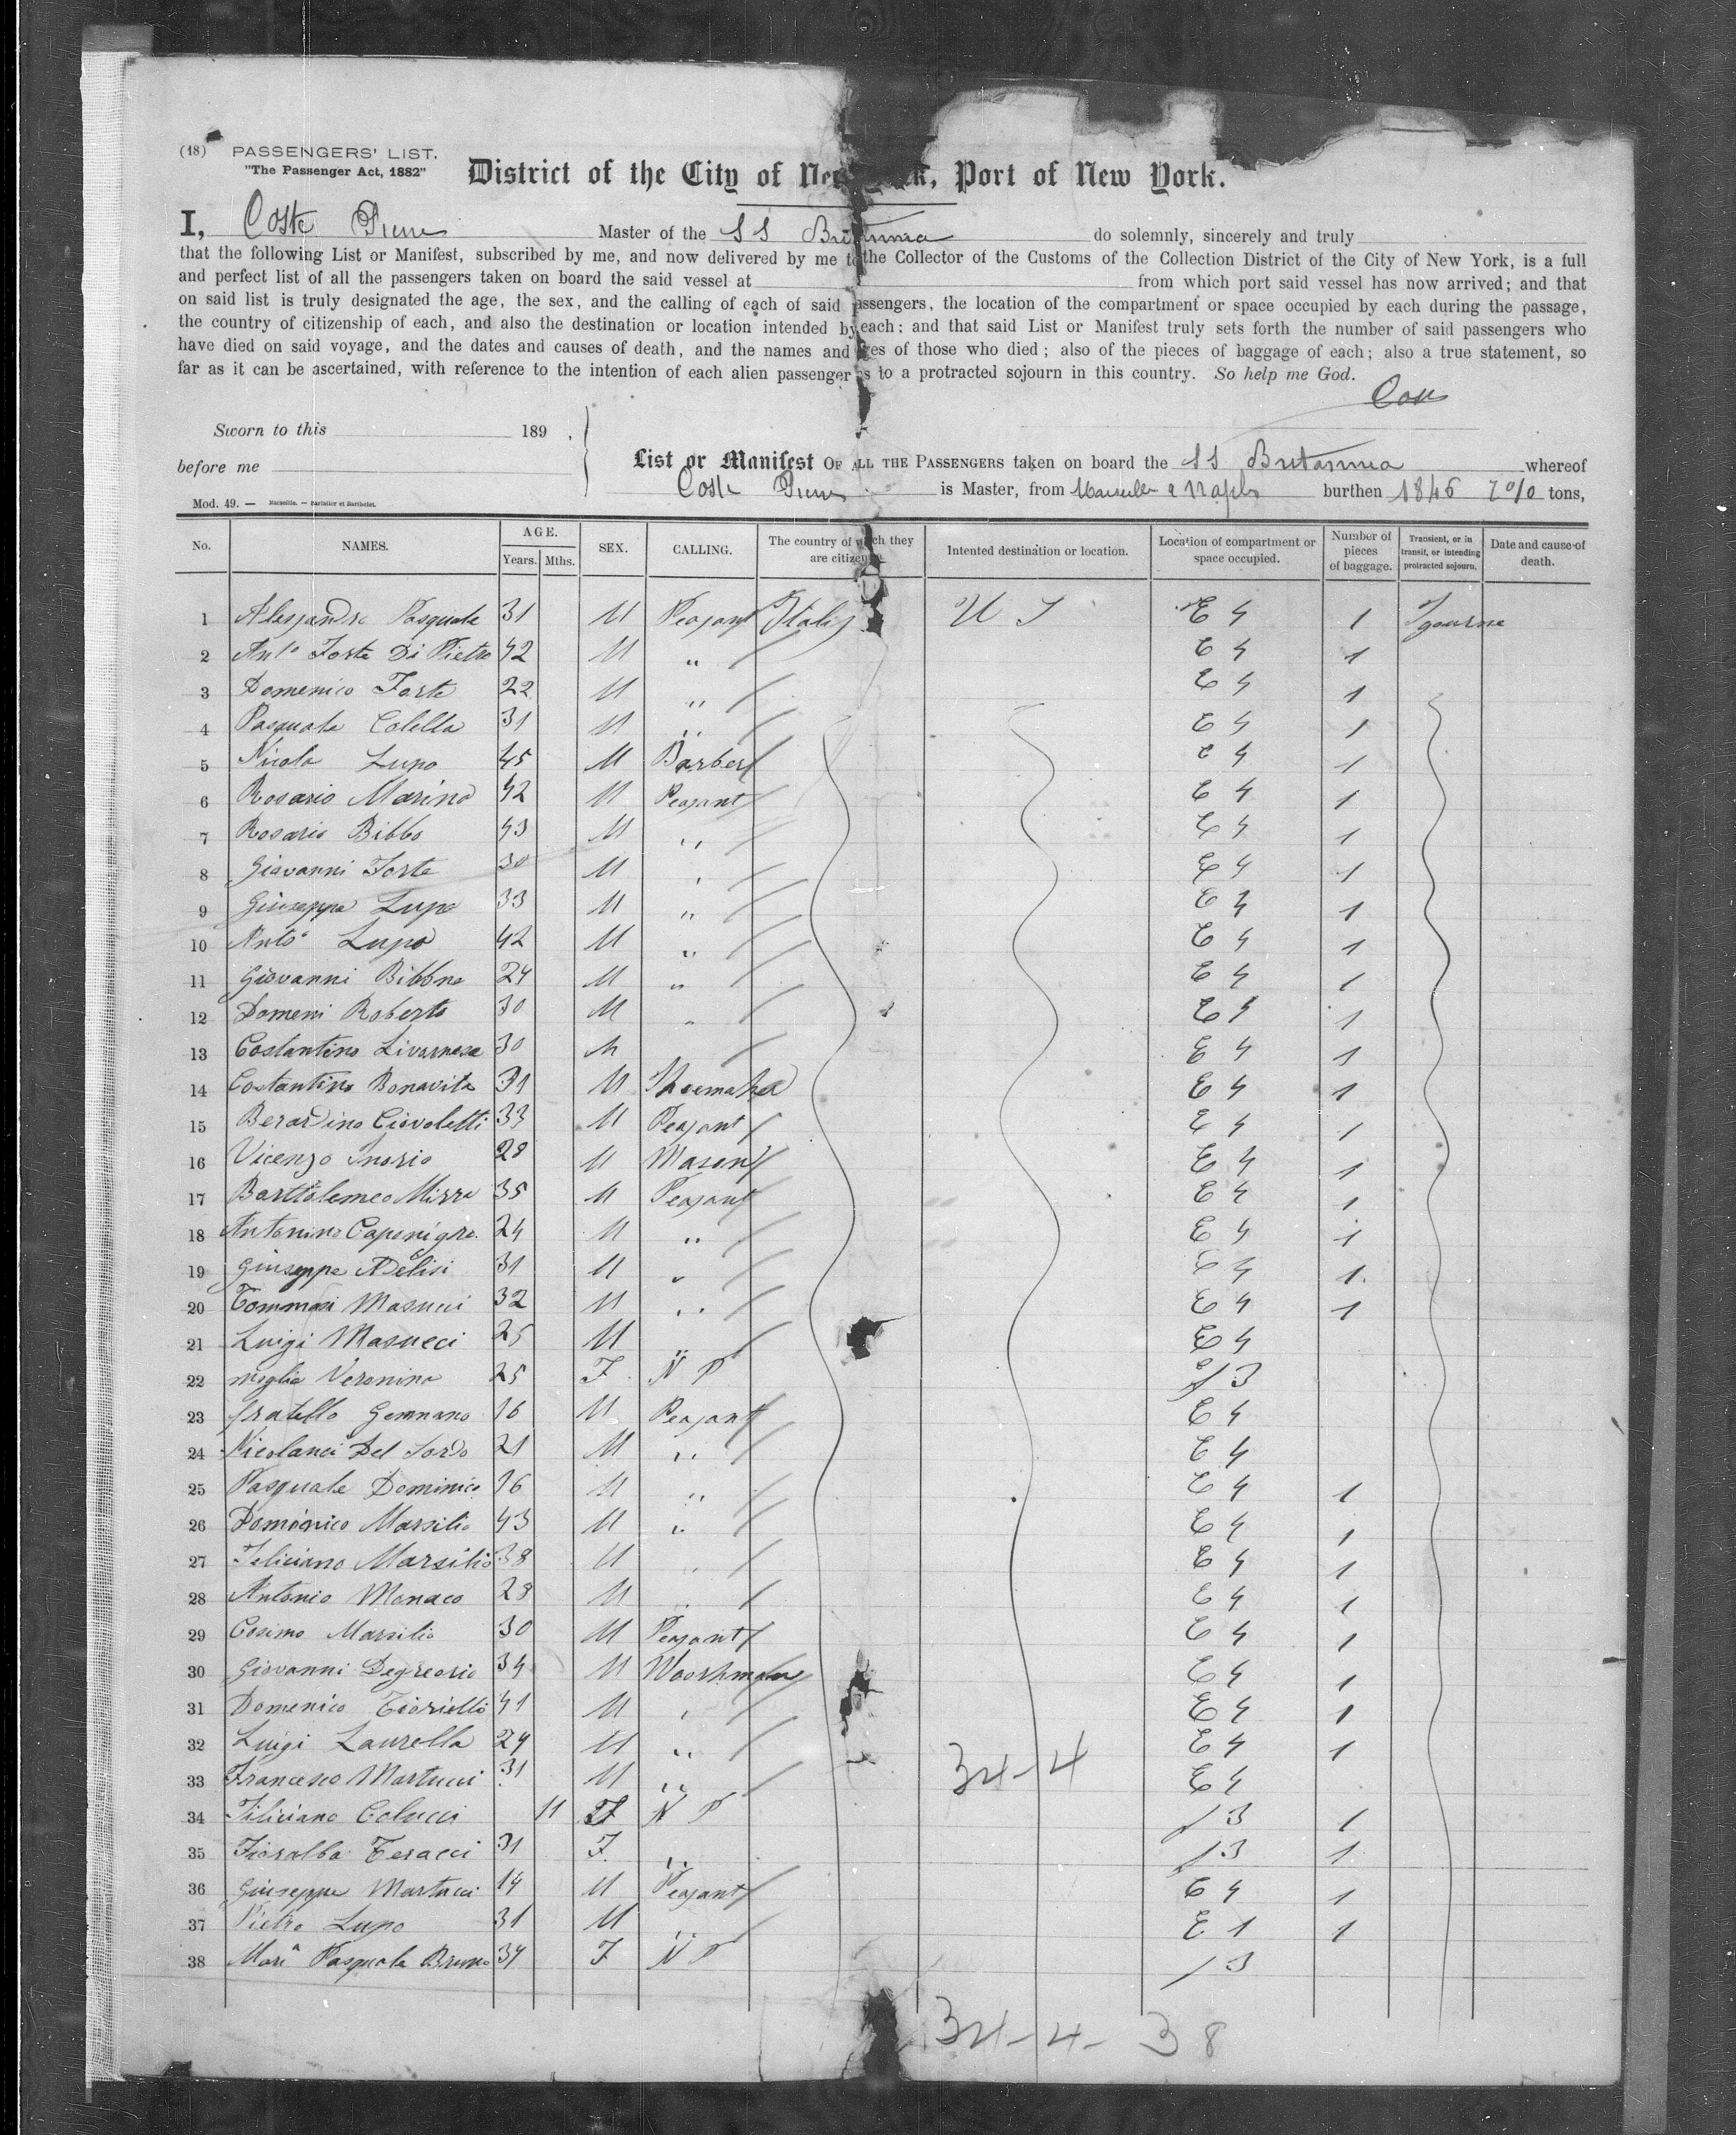 (18) PASSENGERS' LIST.
"The Passenger Act, 1882"
District of the City of New York, Port of New York.
I, Coste Pierre Master of the SS Britannia do solemnly, sincerely and truly
that the following List or Manifest, subscribed by me, and now delivered by me to the Collector of the Customs of the Collection District of the City of New York, is a full
and perfect list of all the passengers taken on board the said vessel at from which port said vessel has now arrived; and that
on said list is truly designated the age, the sex, and the calling of each of said passengers, the location of the compartment or space occupied by each during the passage,
the country of citizenship of each, and also the destination or location intended by each: and that said List or Manifest truly sets forth the number of said passengers who
have died on said voyage, and the dates and causes of death, and the names and ages of those who died; also of the pieces of baggage of each; also a true statement, so
far as it can be ascertained, with reference to the intention of each alien passenger as to a protracted sojourn in this country. So help me God.
Sworn to this 189 .
before me
List or Manifest OF ALL THE PASSENGERS taken on board the SS Britannia whereof
Coste Pierre is Master, from Marseille & Naples burthen 1846 tons,
Mod. 49. — Marseille. — Barlatier et Barthelet.
No. NAMES. AGE. Years. Mths. SEX. CALLING. The country of which they are citizens. Intented destination or location. Location of compartment or space occupied. Number of pieces of baggage. Transient, or in transit, or intending protracted sojourn. Date and cause of death.
1 Alessandro Pasquale 31 M Peasant Italy U S E 4 1
2 Anto Forte Di Pietro 42 M " E 4 1
3 Domenico Forte 22 M " E 4 1
4 Pasquale Colella 31 M " E 4 1
5 Nicola Lupo 45 M Barber E 4 1
6 Rosario Marino 42 M Peasant E 4 1
7 Rosario Bibbo 43 M " E 4 1
8 Giovanni Forte 30 M " E 4 1
9 Giuseppe Lupo 33 M " E 4 1
10 Anto Lupo 42 M " E 4 1
11 Giovanni Bibbne 24 M " E 4 1
12 Domeni Roberto 30 M " E 4 1
13 Costantino Livornese 30 M E 4 1
14 Costantino Bonavita 31 M Shoemaker E 4 1
15 Berardino Ciovoletti 33 M Peasant E 4 1
16 Vicenzo 28 M Mason E 4 1
17 Barttolomeo Mirra 35 M Peasant E 4 1
18 Antonino Caponigro 24 M " E 4 1
19 Giuseppe 31 M " E 4 1
20 Tommasi Masucci 32 M " E 4 1
21 Luigi Masucci 25 M " E 4
22 moglie Veronina 25 F N P 3
23 fratello Gennano 16 M Peasant E 4
24 Nicolanci Del Sordo 21 M " E 4
25 Pasquale Dominico 16 M " E 4 1
26 Domenico Marsilio 43 M " E 4 1
27 Feliciano Marsilio 38 M " E 4 1
28 Antonio Monaco 28 M " E 4 1
29 Cosimo Marsilio 30 M Peasant E 4 1
30 Giovanni Degreorio 34 M Woorkman E 4 1
31 Domenico Fiorielli 41 M " E 4 1
32 Luigi Laurella 24 M " E 4 1
33 Francesco Martucci 31 M " 34-4 E 4
34 Filiciano Colucci 11 F N P 3 1
35 Fioralba Teracci 31 F " 3 1
36 Giuseppe Martucci 14 M Peasant E 4 1
37 Pietro Lupo 31 M " E 1 1
38 Maria Pasquale Bruno 34 F N P 3
34-4- 38